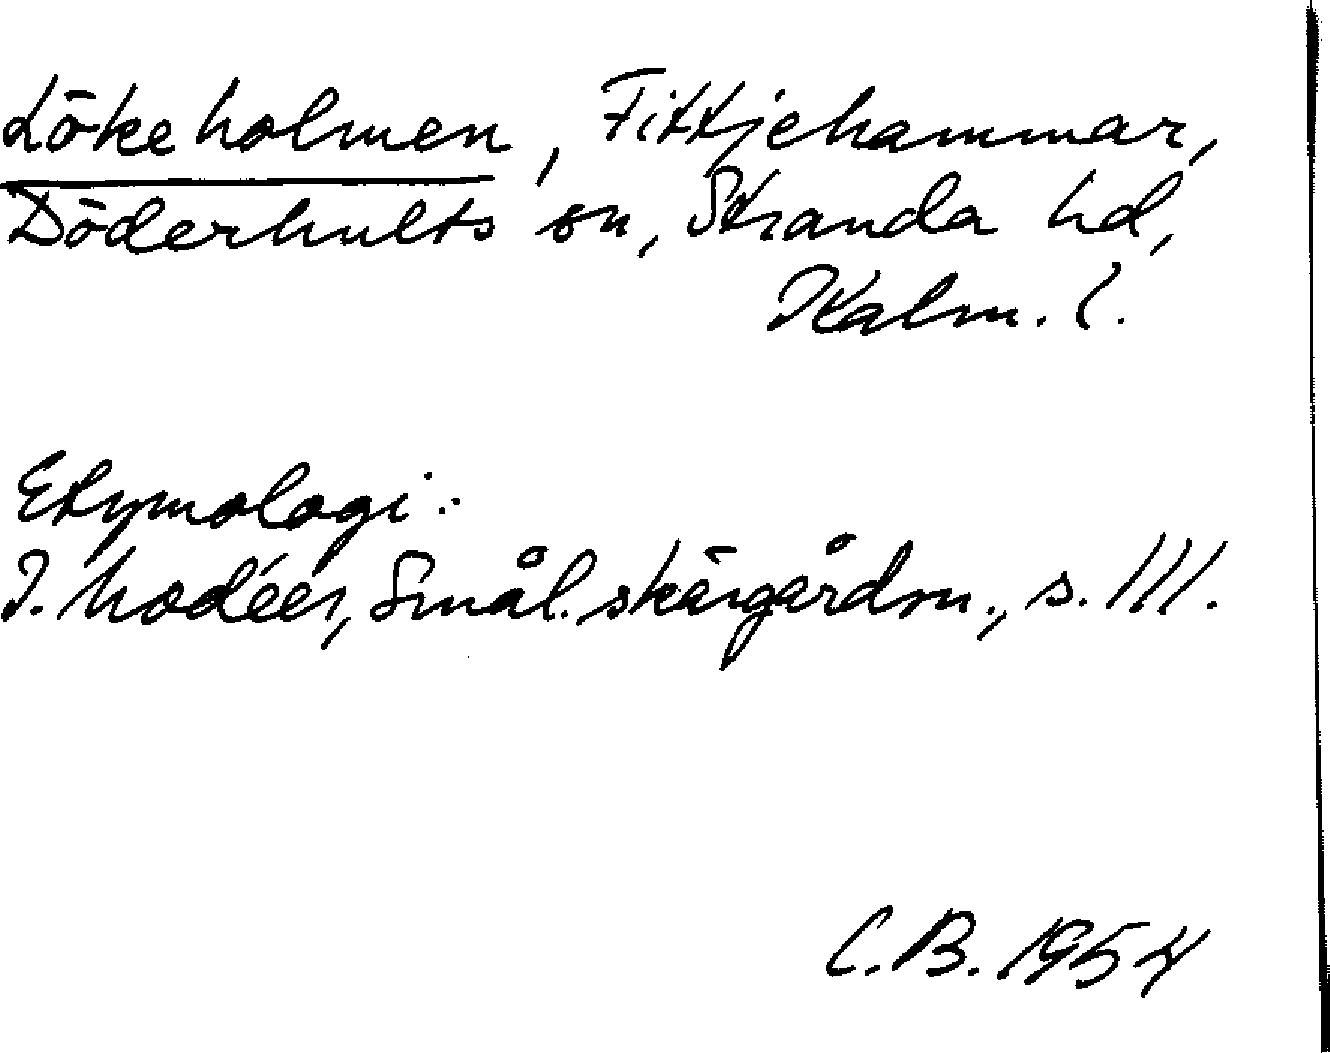 Lökeholmen, Fittjehammar,
Döderhults sn, Stranda hd,
Kalm. l.
Etymologi:
I. Modéer, Smål. skärgårdsn., s. 111.
C.B. 1954